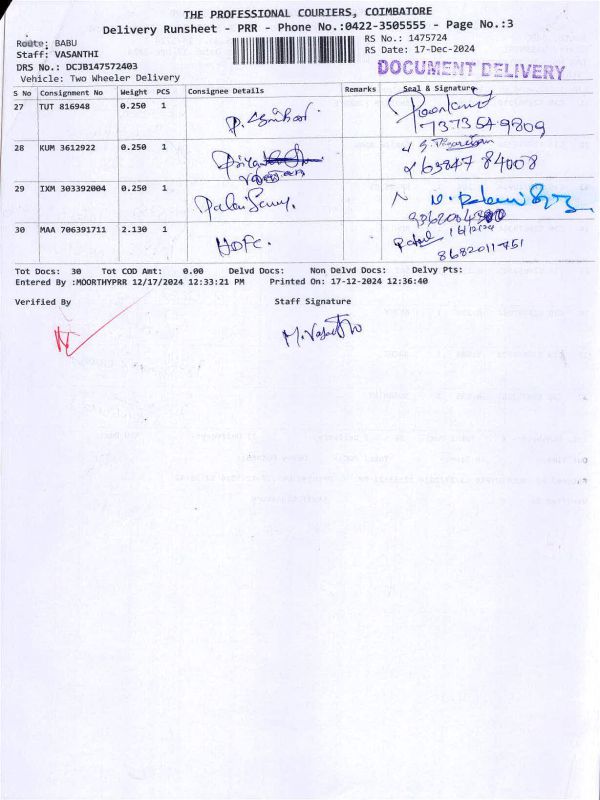 THE PROFESSIONAL COURIERS, COIMBATORE
Delivery Runsheet - PRR - Phone No.:0422-3505555 - Page No.:3
Route: BABU
RS No.: 1475724
Staff: VASANTHI
RS Date: 17-Dec-2024
DRS No.: DCJB147572403
DOCUMENT DELIVERY
Vehicle: Two Wheeler Delivery
S No Consignment No Weight PCS Consignee Details Remarks Seal & Signature
27 TUT 816948 0.250 1
7373549809
28 KUM 3612922 0.250 1
63847 84008
29 IXM 303392004 0.250 1
30 MAA 706391711 2.130 1 HDFC.
8682011751
Tot Docs: 30 Tot COD Amt: 0.00 Delvd Docs: Non Delvd Docs: Delvy Pts:
Entered By :MOORTHYPRR 12/17/2024 12:33:21 PM Printed On: 17-12-2024 12:36:40
Verified By Staff Signature